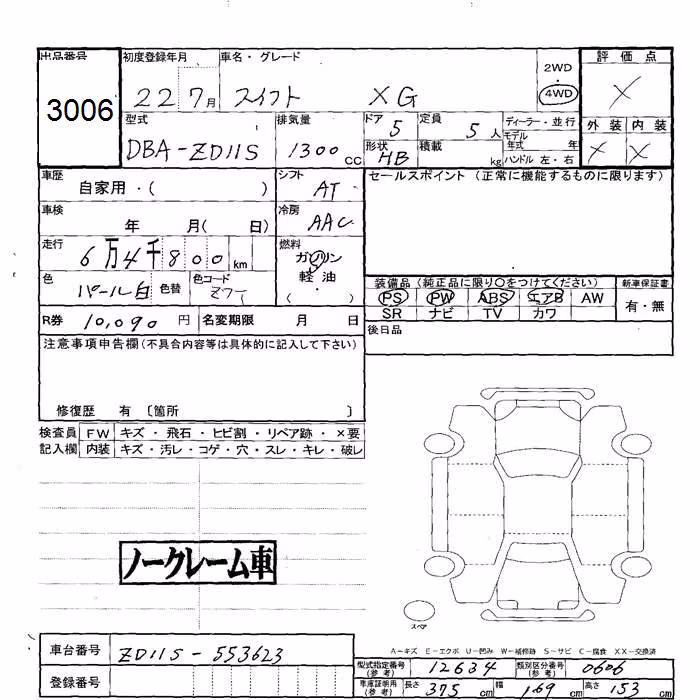 出品番号 初度登録年月 車名・グレード 評価点
3006 22 7月 スイフト XG 2WD・4WD X
型式 排気量 ドア 定員 ディーラー・並行 外装 内装
DBA-ZD11S 1300cc 5 5人 モデル年式 年 X X
形状 HB 積載 kg ハンドル 左・右
車歴 シフト セールスポイント (正常に機能するものに限ります)
自家用・( ) AT
車検 冷房
年 月( 日) AAC
走行 燃料
6万4千800km ガソリン・軽油・( )
色 色替 色コード 装備品 (純正品に限り○をつけてください) 新車保証書
パール白 PS PW ABS エアB AW 有・無
SR ナビ TV カワ
R券 10,090円 名変期限 月 日 後日品
注意事項申告欄(不具合内容等は具体的に記入して下さい)
修復歴 有 〔箇所 〕
検査員 FW キズ・飛石・ヒビ割・リペア跡・×要
記入欄 内装 キズ・汚レ・コゲ・穴・スレ・キレ・破レ
ノークレーム車
スペア
A-キズ E-エクボ U-凹み W-補修跡 S-サビ C-腐食 XX-交換済
車台番号 ZD11S-553623 型式指定番号(参考) 12634 類別区分番号(参考) 0606
登録番号 車庫証明用(参考) 長さ 375cm 幅 169cm 高さ 153cm